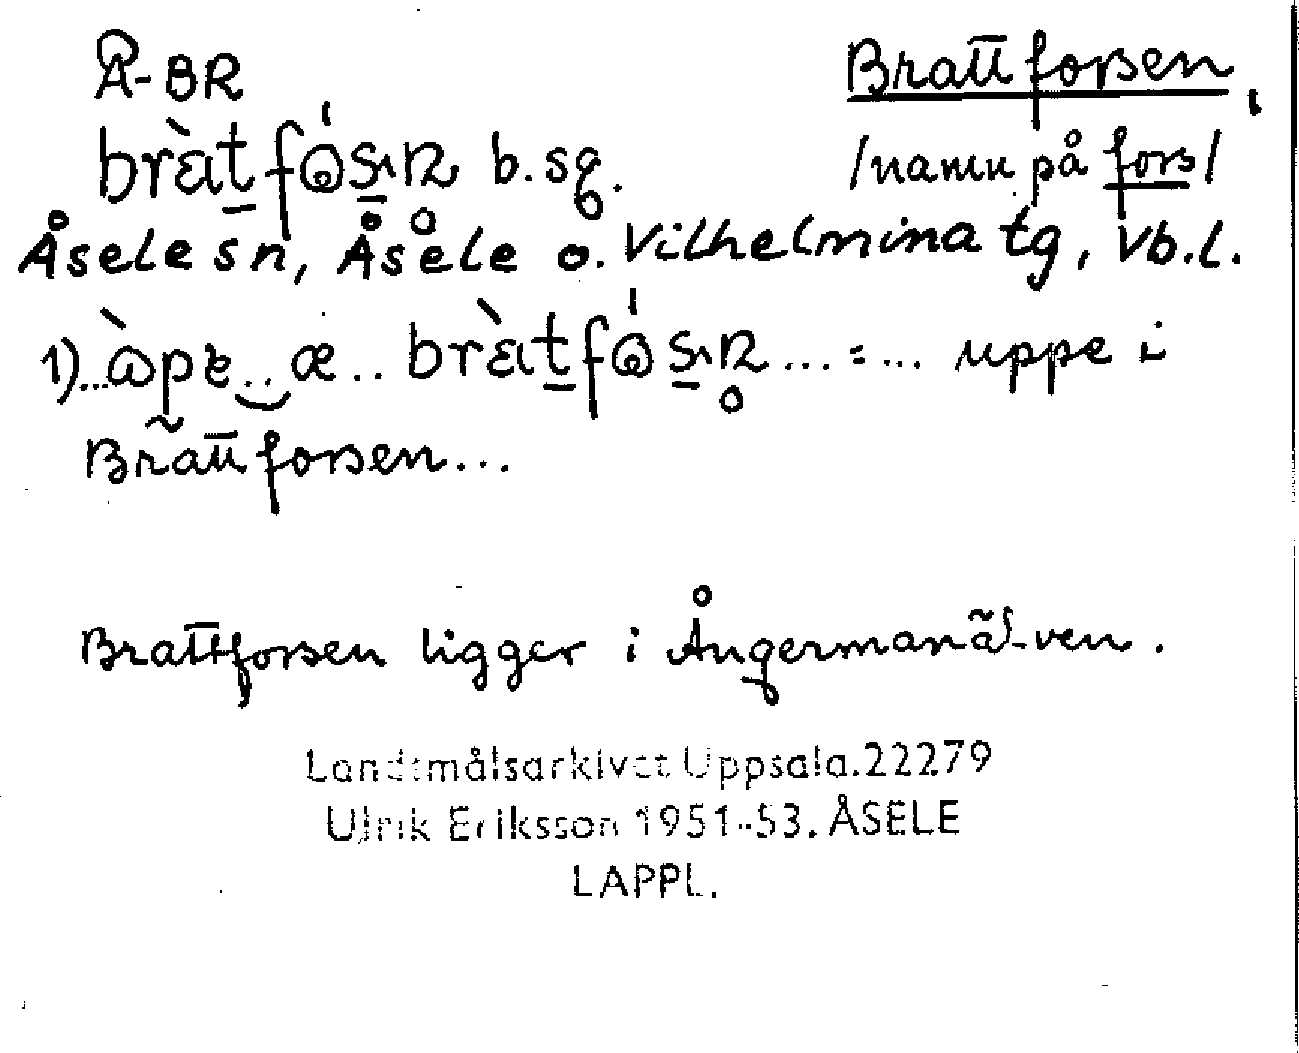 Å-BR Brattforsen,
bràtfósn b.sg. /namn på fors/
Åsele sn, Åsele o. Vilhelmina tg, Vb.l.
1)...àpe..æ..bràtfósn...=... uppe i
Brattforsen...
Brattforsen ligger i Ångermanälven.
Landsmålsarkivet Uppsala.22279
Ulrik Eriksson 1951-53. ÅSELE
LAPPL.